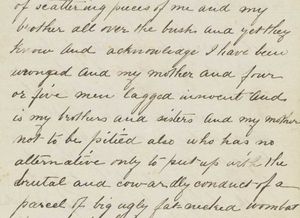 of scattering pieces of me and my
brother all over the bush and yet they
know and acknowledge I have been
wronged and my mother and four
or five men lagged innocent and
is my brothers and sisters and my mother
not to be pitied also who has no
alternative only to put up with the
brutal and cowardly conduct of a
parcel of big ugly fat necked wombat